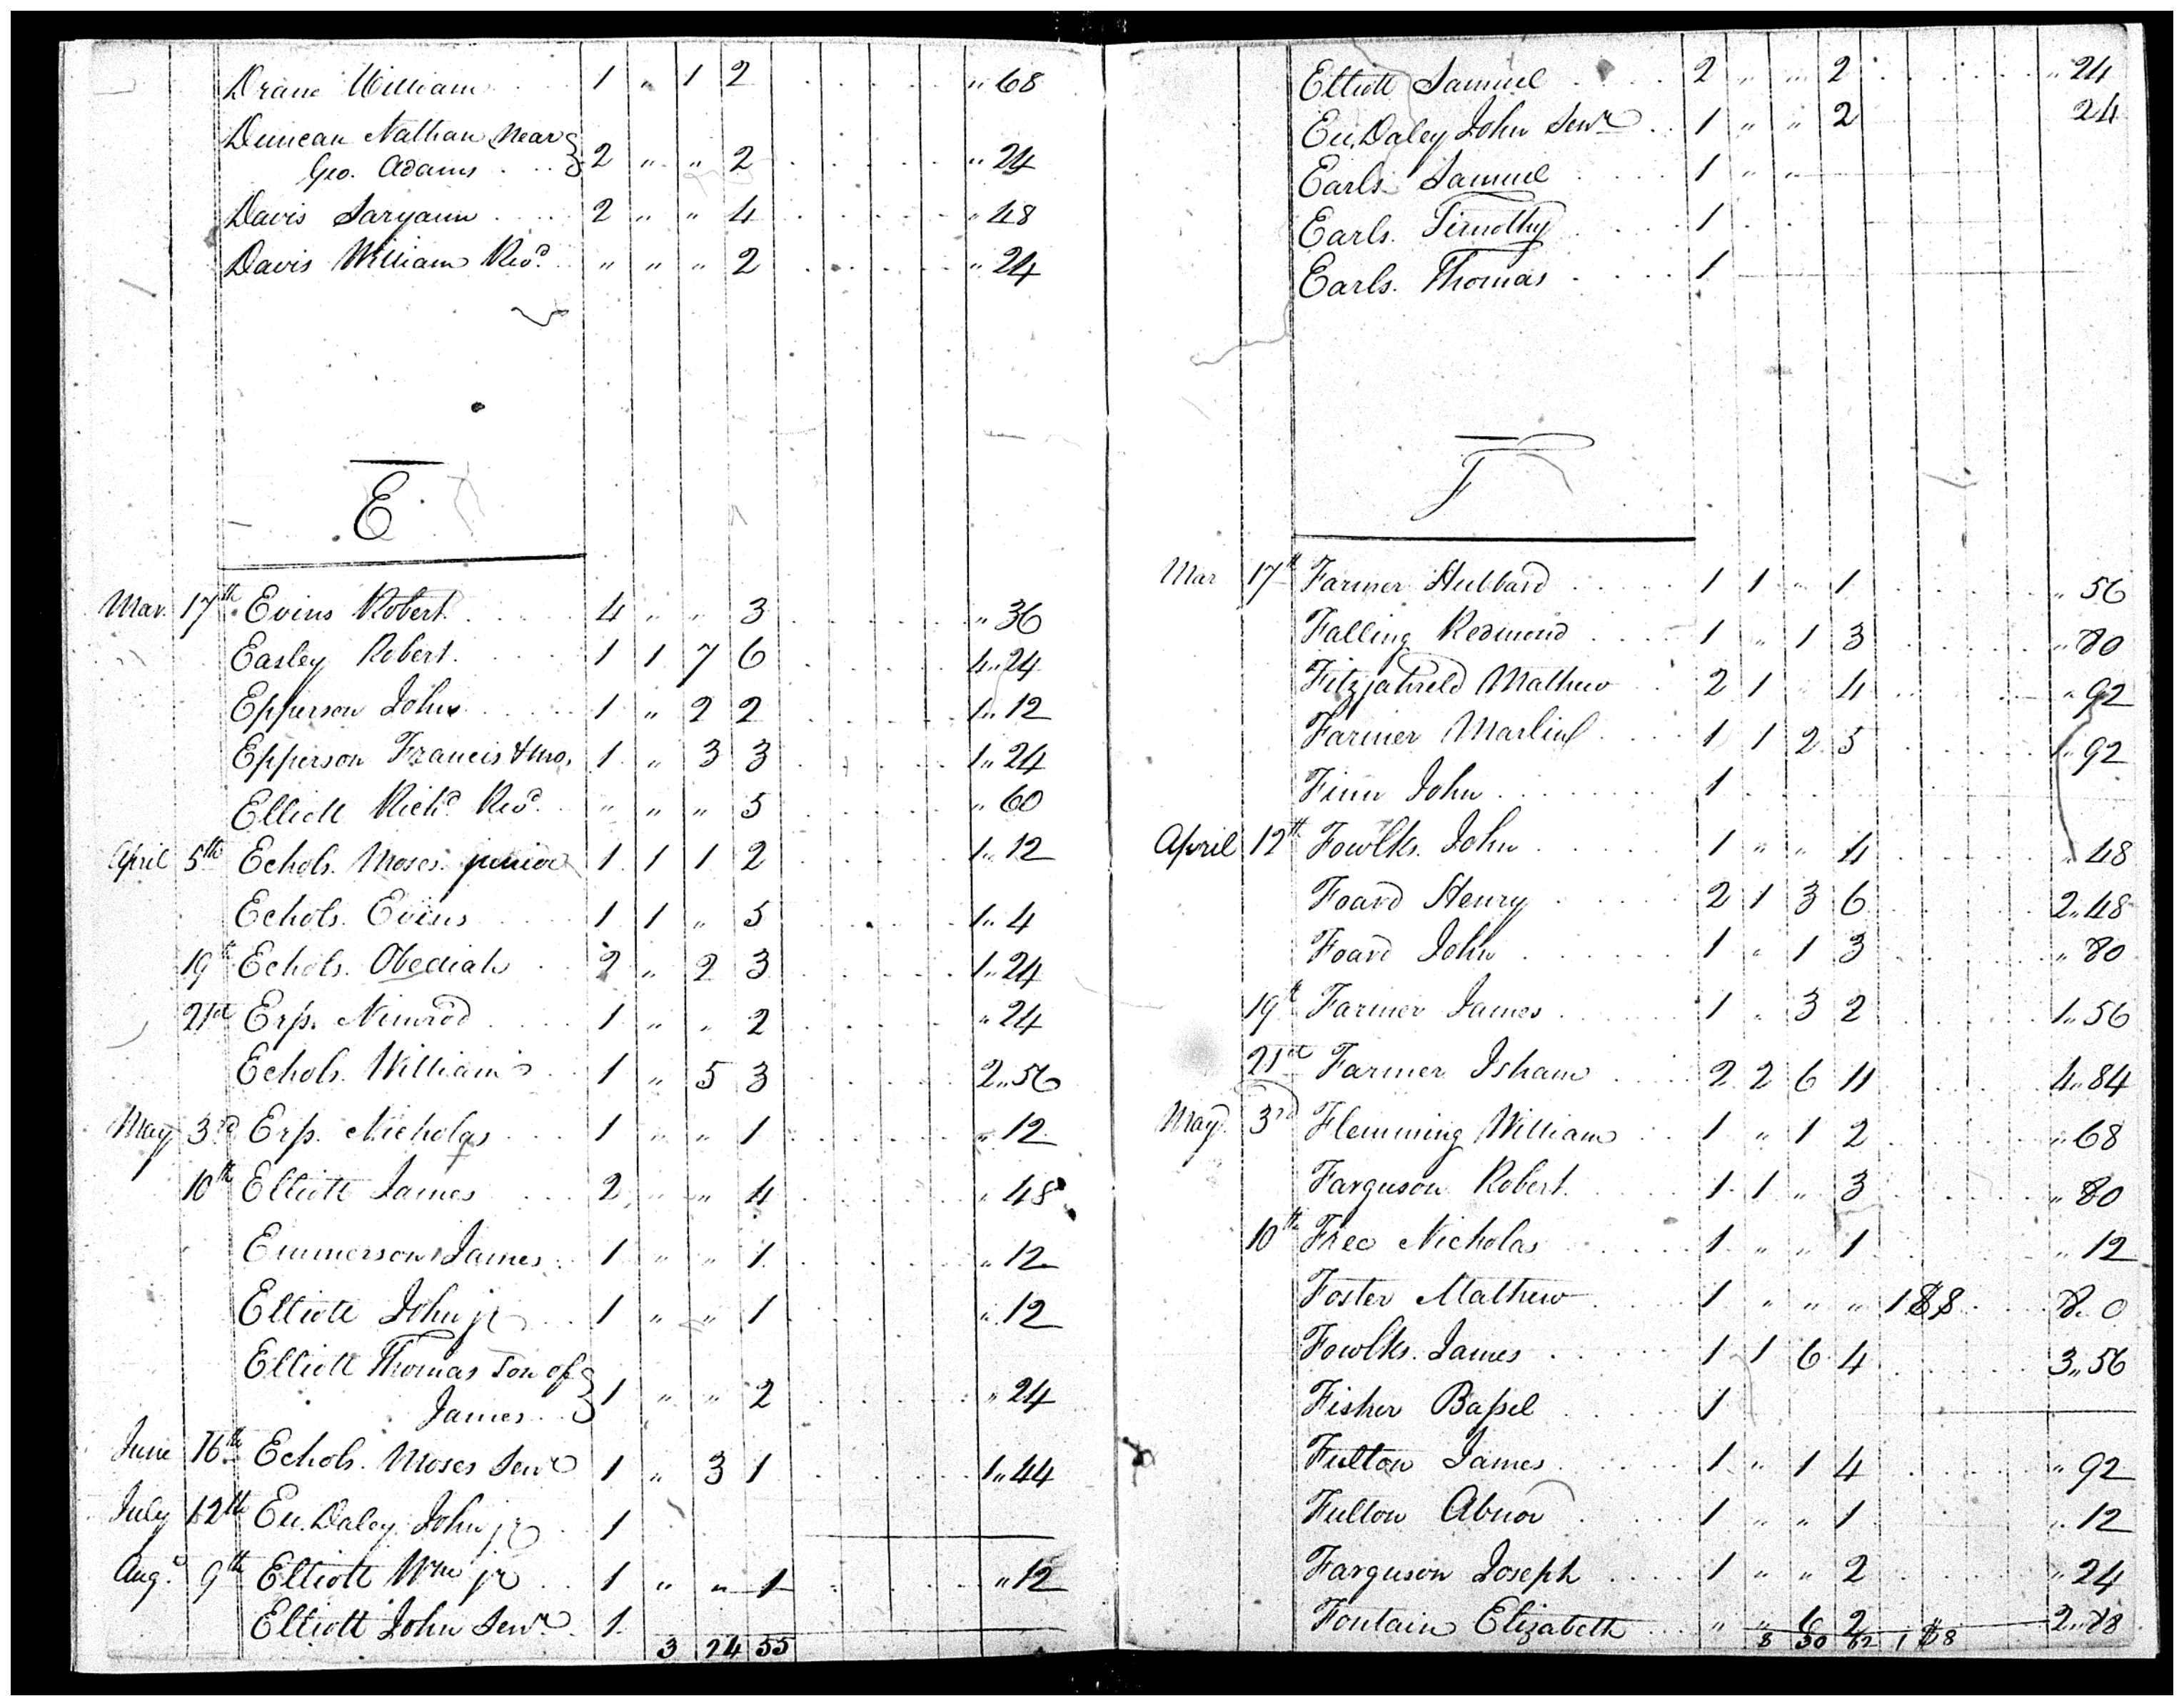 Drane William 1 " 1 2 " 68
Duncan Nathan near
Geo. Adams 2 " " 2 " 24
Davis Saryann 2 " " 4 " 48
Davis William Revd. " " " 2 " 24
E
Mar. 17th Evins Robert 4 " " 3 " 36
Easley Robert 1 1 7 6 4 " 24
Epperson John 1 " 2 2 1 " 12
Epperson Francis & mo. 1 " 3 3 1 " 24
Elliott Richd Revd. " " " 5 " 60
April 5th Echols Moses junior 1 1 1 2 1 " 12
Echols Evins 1 1 " 5 1 " 4
19th Echols Obediah 2 " 2 3 1 " 24
21st Erp. Nimrod 1 " " 2 " 24
Echols William 1 " 5 3 2 " 56
May 3rd Erp. Nicholas 1 " " 1 " 12
10th Elliott James 2 " " 4 " 48
Emmerson James 1 " " 1 " 12
Elliott John jr 1 " " 1 " 12
Elliott Thomas Son of
James 1 " " 2 " 24
June 16th Echols Moses Senr 1 " 3 1 1 " 44
July 12th Eu. Daley John jr 1
Augt. 9th Elliott Wm jr 1 " " 1 " 12
Elliott John Senr. 1
3 24 55
Elliott Samuel 2 " " 2 " 24
Eu. Daley John Senr 1 " " 2 24
Earls Samuel 1 " "
Earls. Timothy 1
Earls. Thomas 1
F
Mar 17th Farmer Hubbard 1 1 " 1 " 56
Falling Redmond 1 " 1 3 " 80
Fitzjahreld Mathew 2 1 " 4 " 92
Farmer Marlin 1 1 2 5 1 " 92
Finn John 1
April 12th Fowlks. John 1 " " 4 " 48
Foard Henry 2 1 3 6 2 " 48
Foard John 1 " 1 3 " 80
19th Farmer James 1 " 3 2 1 " 56
21st Farmer Isham 2 2 6 11 4 " 84
May 3rd Flemming William 1 " 1 2 " 68
Farguson Robert 1 1 " 3 " 80
10th Free Nicholas 1 " " 1 " 12
Foster Mathew 1 " " " 1 $8 8. 0
Fowlks. James 1 1 6 4 3 " 56
Fisher Bassel 1
Fulton James 1 " 1 4 " 92
Fulton Abnor 1 " " 1 " 12
Farguson Joseph 1 " " 2 " 24
Fontain Elizabeth " " 6 2 2 " 88
8 30 62 1 $8